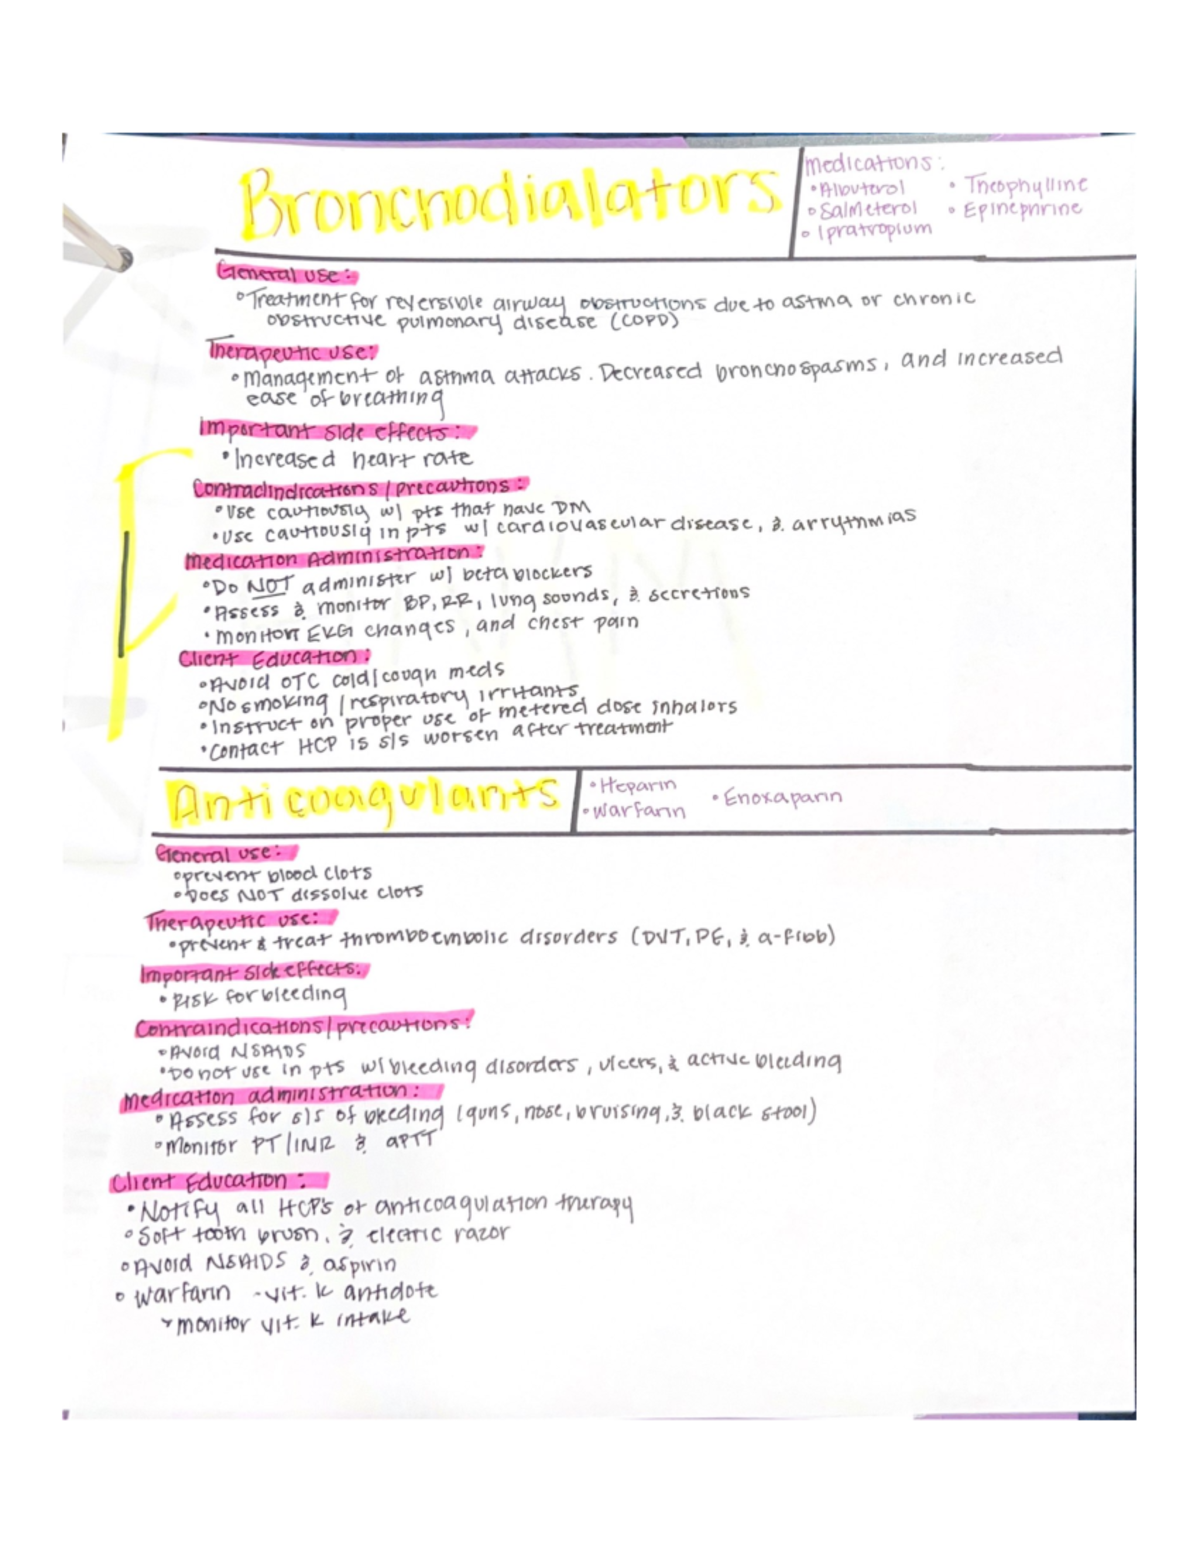 Bronchodialators
Medications:
• Albuterol • Theophylline
• Salmeterol • Epinephrine
• Ipratropium
General use:
• Treatment for reversible airway obstructions due to astma or chronic
obstructive pulmonary disease (COPD)
Therapeutic use:
• Management of asthma attacks. Decreased bronchospasms, and increased
ease of breathing
Important side effects:
• Increased heart rate
Contradindications/precautions:
• Use cautiously w/ pts that have DM
• Use cautiously in pts w/ cardiovascular disease, & arrythmias
Medication Administration:
• Do NOT administer w/ beta blockers
• Assess & monitor BP, RR, lung sounds, & secretions
• monitor EKG changes, and chest pain
Client Education:
• Avoid OTC cold/cough meds
• No smoking /respiratory irritants
• Instruct on proper use of metered dose inhalors
• Contact HCP is s/s worsen after treatment
Anticoagulants
• Heparin
• Warfarin • Enoxaparin
General use:
• prevent blood clots
• Does NOT dissolve clots
Therapeutic use:
• prevent & treat thromboembolic disorders (DVT, PE, & a-fibb)
Important side effects:
• Risk for bleeding
Contraindications/precautions:
• Avoid NSAIDS
• Do not use in pts w/ bleeding disorders, ulcers, & active bleeding
Medication administration:
• Assess for s/s of bleeding (guns, nose, bruising, & black stool)
• Monitor PT/INR & aPTT
Client Education:
• Notify all HCP's of anticoagulation therapy
• Soft tooth brush, & electric razor
• Avoid NSAIDS & aspirin
• Warfarin - vit. K antidote
↳ monitor vit. K intake